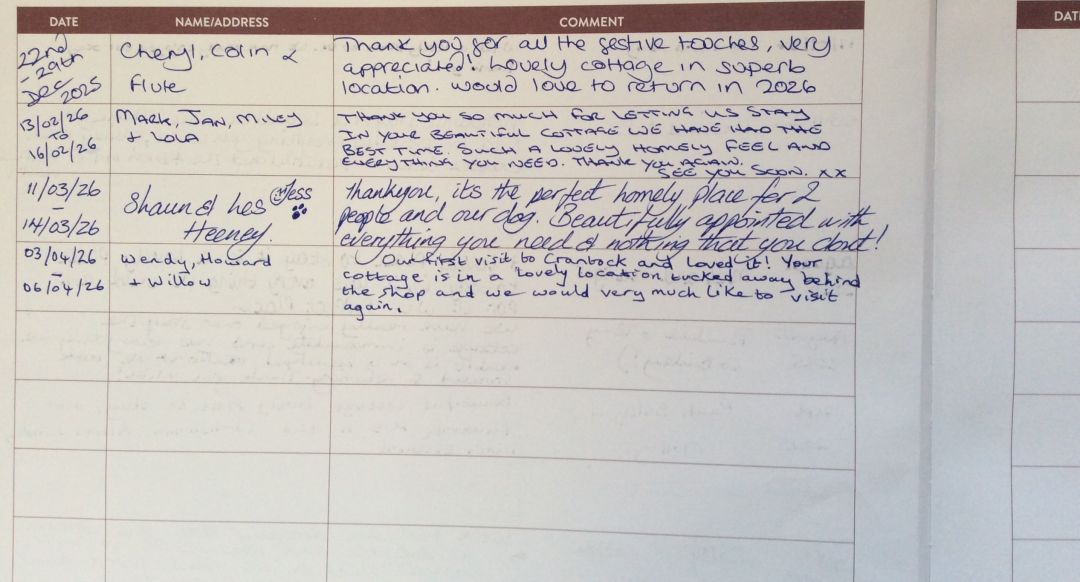 DATE NAME/ADDRESS COMMENT
22nd - 29th Dec 2025
Cheryl, Colin & Flute
Thank you for all the festive touches, very
appreciated! Lovely cottage in superb
location. would love to return in 2026
13/02/26
TO
16/02/26
MARK, JAN, MILEY
+ LOLA
THANK YOU SO MUCH FOR LETTING US STAY
IN YOUR BEAUTIFUL COTTAGE WE HAVE HAD THE
BEST TIME. SUCH A LOVELY HOMELY FEEL AND
EVERYTHING YOU NEED. THANK YOU AGAIN.
SEE YOU SOON. XX
11/03/26
–
14/03/26
Shaun & Les Jess
Heeney.
Thankyou, its the perfect homely place for 2
people and our dog. Beautifully appointed with
everything you need & nothing that you dont!
03/04/26
–
06/04/26
Wendy, Howard
+ Willow
Our first visit to Crantock and loved it! Your
cottage is in a lovely location tucked away behind
the shop and we would very much like to visit
again.
DAT